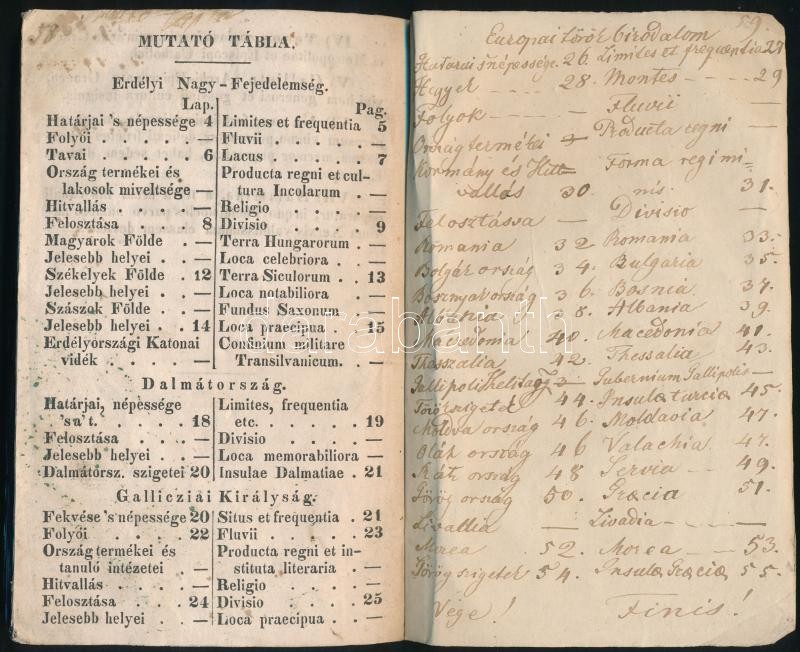 MUTATÓ TÁBLA.
Erdélyi Nagy-Fejedelemség.
Lap. Pag.
Határjai 's népessége 4 Limites et frequentia 5
Folyói . . . . — Fluvii . . . . —
Tavai . . . . 6 Lacus . . . . 7
Ország termékei és Producta regni et cul-
lakosok miveltsége — tura Incolarum . —
Hitvallás . . . . — Religio . . . . —
Felosztása . . . 8 Divisio . . . . 9
Magyarok Földe . — Terra Hungarorum . —
Jelesebb helyei . . — Loca celebriora . —
Székelyek Földe . 12 Terra Siculorum . 13
Jelesebb helyei . . — Loca notabiliora . —
Szászok Földe . . — Fundus Saxonum . —
Jelesebb helyei . 14 Loca praecipua . 15
Erdélyországi Katonai Confinium militare
vidék . . . . — Transilvanicum. . —
Dalmátország.
Határjai, népessége Limites, frequentia
's a' t. . . . . 18 etc. . . . . 19
Felosztása . . . — Divisio . . . . —
Jelesebb helyei . . — Loca memorabiliora —
Dalmátorsz. szigetei 20 Insulae Dalmatiae . 21
Gallicziai Királyság.
Fekvése 's népessége 20 Situs et frequentia . 21
Folyói . . . . 22 Fluvii . . . . 23
Ország termékei és Producta regni et in-
tanuló intézetei . — stituta literaria . —
Hitvallás . . . . — Religio . . . . —
Felosztása . . . 24 Divisio . . . . 25
Jelesebb helyei . . — Loca praecipua . . —
59.
Europai török birodalom
Határai s népessége 26. Limites et frequentia 27
Hegyek - - - - 28. Montes - - - 29
Folyok - - - — Fluvii —
Ország termékei — Producta regni —
Kormány és Hit- Forma regimi-
vallás 30. nis. 31.
Felosztássa — Divisio —
Romania 32 Romania 33.
Bolgár ország 34. Bulgaria 35.
Bosnyar ország 36. Bosnia 37.
Albánia 38. Albania 39.
Macedonia 40. Macedonia 41.
Thesszalia 42. Thessalia 43.
Gubernium Gallipolis —
Török szigetek 44. Insulæ turciæ 45.
Moldva ország 46. Moldavia 47.
Oláh ország 46 Valachia 47.
Rátz ország 48 Servia - - 49.
Görög ország 50. Græcia 51.
Livallia — Livadia - - —
Morea 52. Morea - - 53.
Görög szigetek 54. Insulæ Græciæ 55.
Vége! Finis!
darabanth